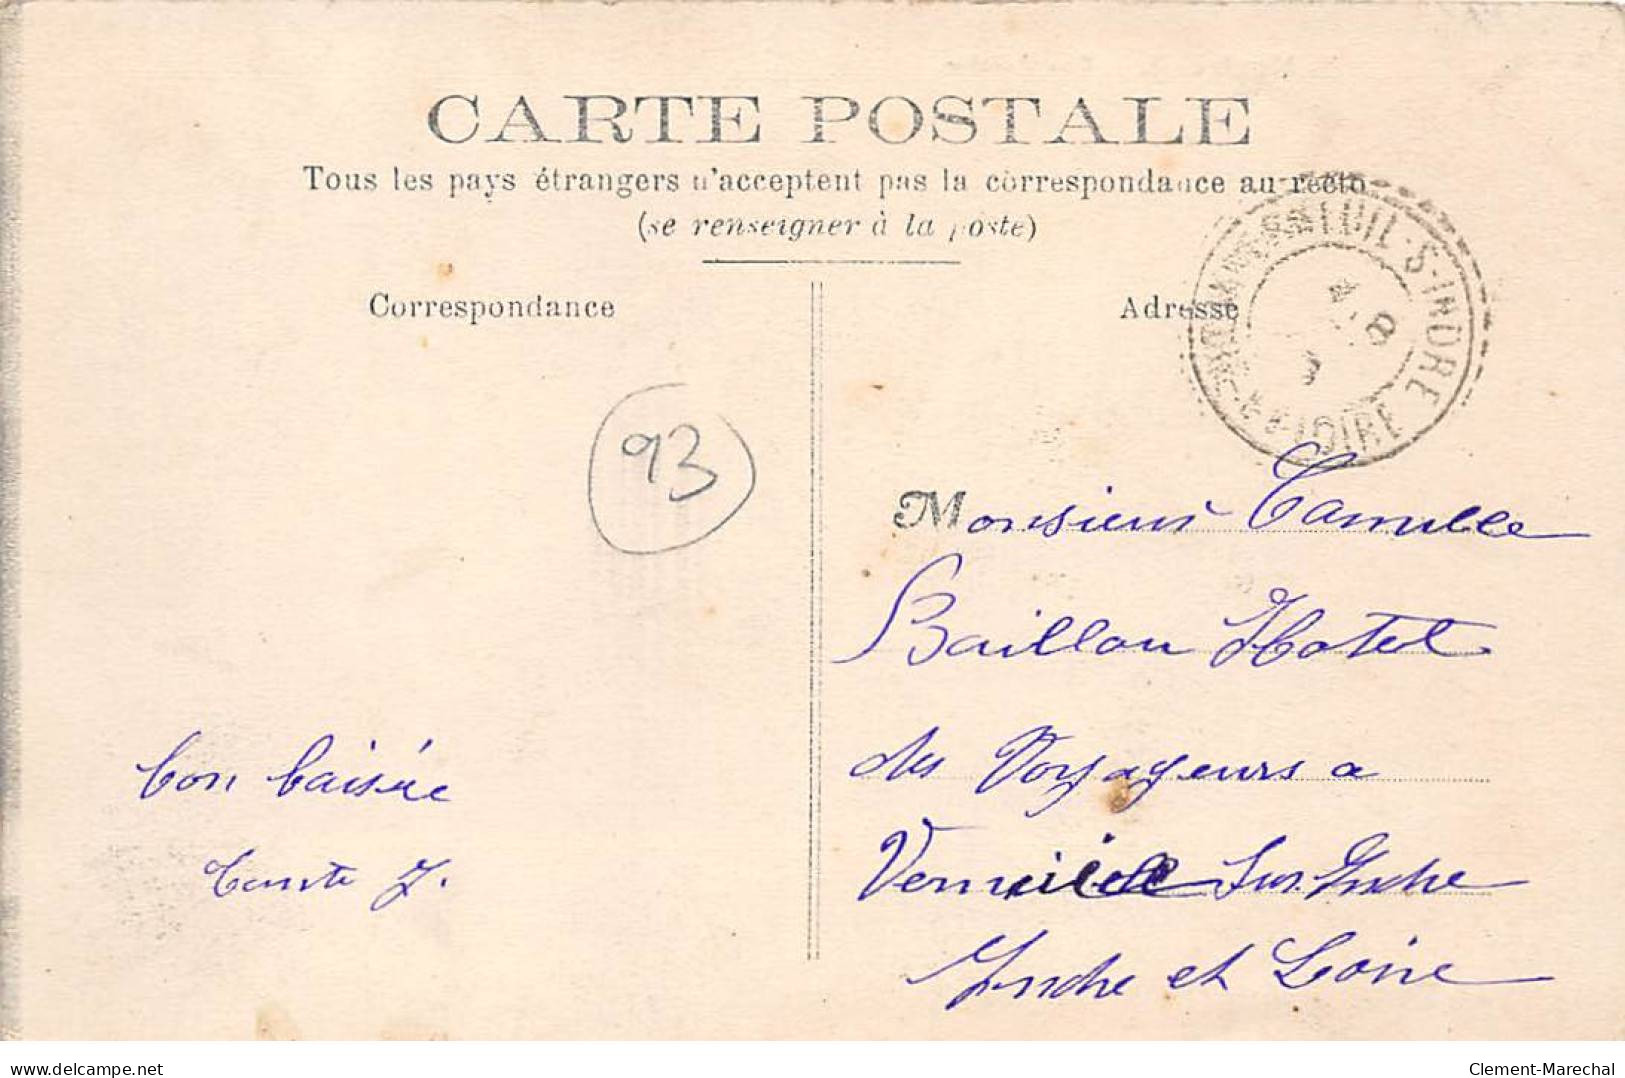 CARTE POSTALE
Tous les pays étrangers n'acceptent pas la correspondance au recto
(se renseigner à la poste)
Correspondance
Adresse
S-INDRE
LOIRE
8
93
Monsieur Camille
Baillou Hotel
des Voyageurs a
Sur Indre
Indre et Loire
bon baisée
J.
delcampe.net
Clement-Marechal